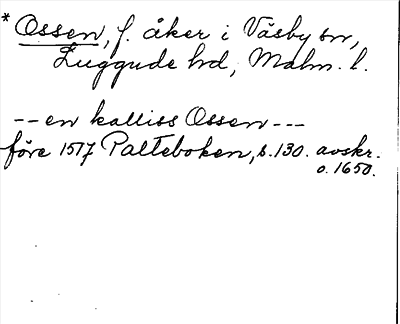 * Ossen, f. åker i Väsby sn,
Luggude hd, Malm. l.
-- en kalliss Ossen ---
före 1517 Palteboken, s. 130. avskr.
o. 1650.